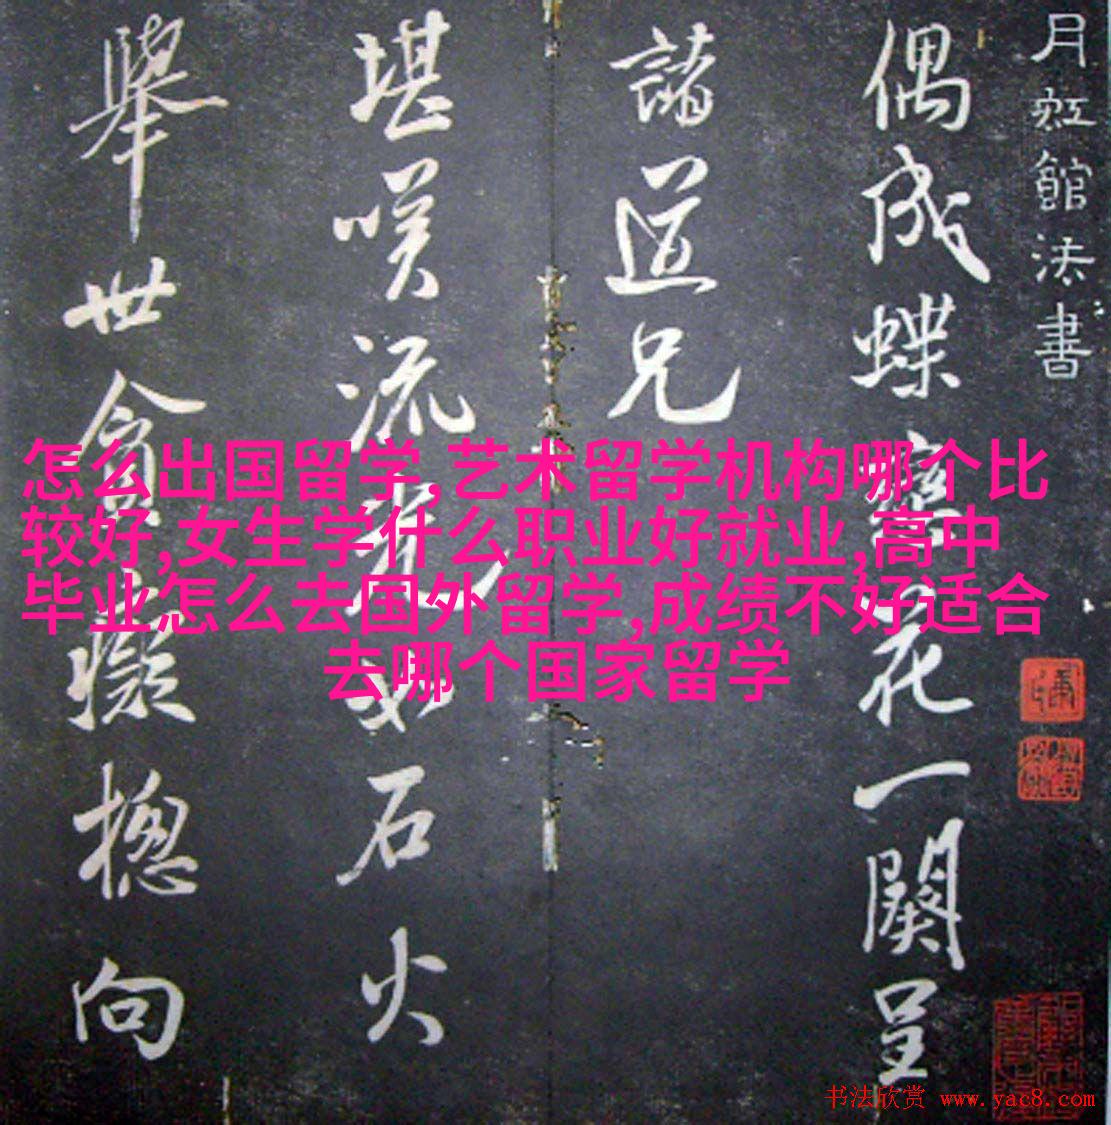 月虹館法書
偶成蝶戀花一闋呈
諸道兄
堪嘆流光如石火
舉世貪癡摠向
怎么出国留学,艺术留学机构哪个比
较好,女生学什么职业好就业,高中
毕业怎么去国外留学,成绩不好适合
去哪个国家留学
书法欣赏 www.yac8.com